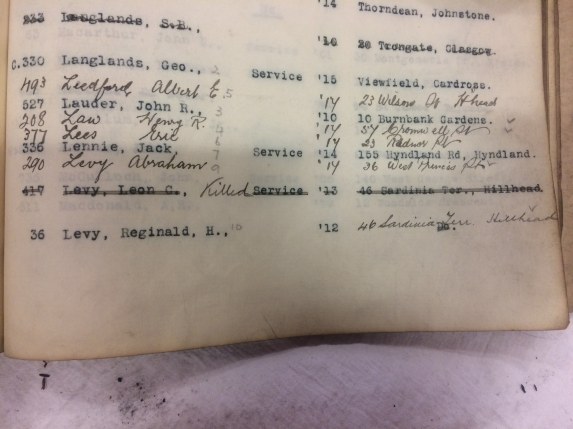 '14 Thorndean, Johnstone.
233 Langlands, S.B., '16 28 Trongate, Glasgow.
c.330 Langlands, Geo., 2 Service '15 Viewfield, Cardross.
493 Leedford Albert E. 5 '17 23 Wilson St H'head
527 Lauder, John R., 3 '10 10 Burnbank Gardens.
208 Law Henry R. '17 57 Cromwell St
377 Lees Eric 6 '17 23 Radnor St
336 Lennie, Jack, 7 Service '14 155 Hyndland Rd, Hyndland.
290 Levy Abraham 9 '17 26 West Princes St
417 Levy, Leon C., Killed Service '13 46 Sardinia Ter., Hillhead
36 Levy, Reginald, H., 10 '12 46 Sardinia Terr. Hillhead
Do.